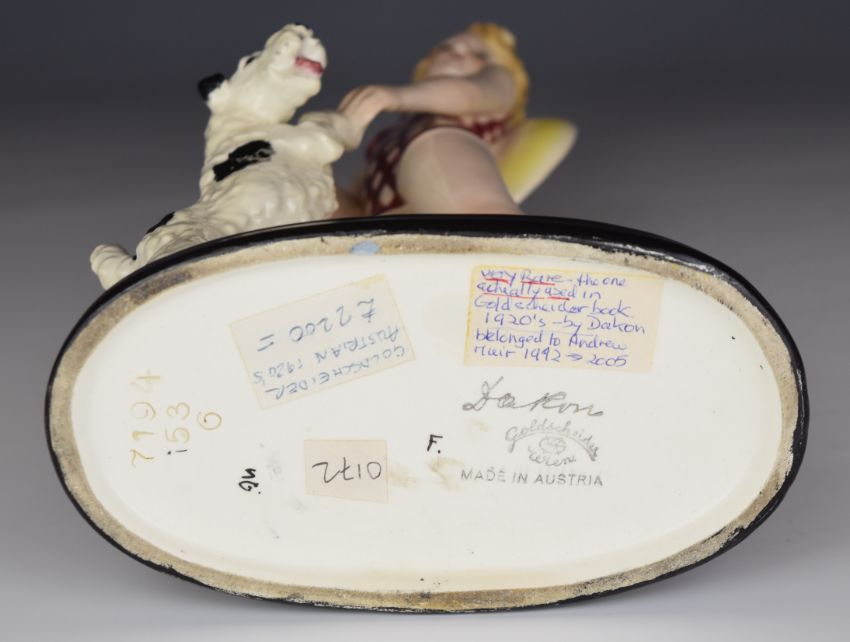 very Rare - the one
actually used in
Goldscheider book
1920's - by Dakon
belonged to Andrew
Muir 1992 → 2005
GOLDSCHEIDER
AUSTRIAN 1920'S
£2200 =
7194
153
6
0172
F.
Dakon
Goldscheider
Wien
MADE IN AUSTRIA